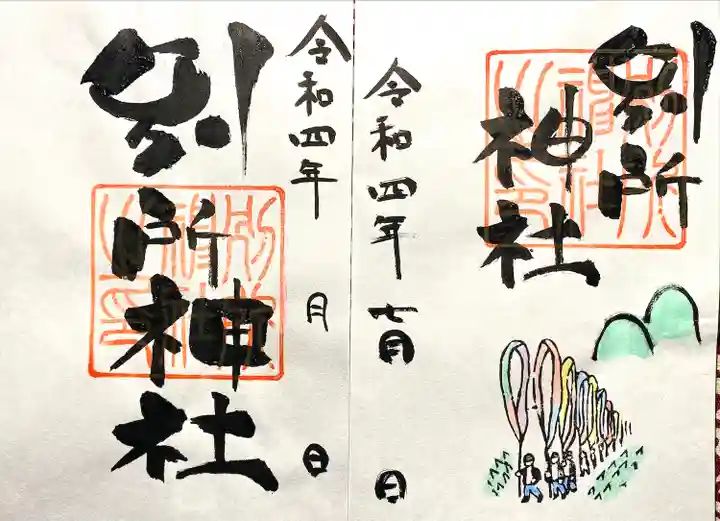 別所
神社
令和四年 七月 日
令和四年 月 日
別所神社
別所神社之印
別所神社之印